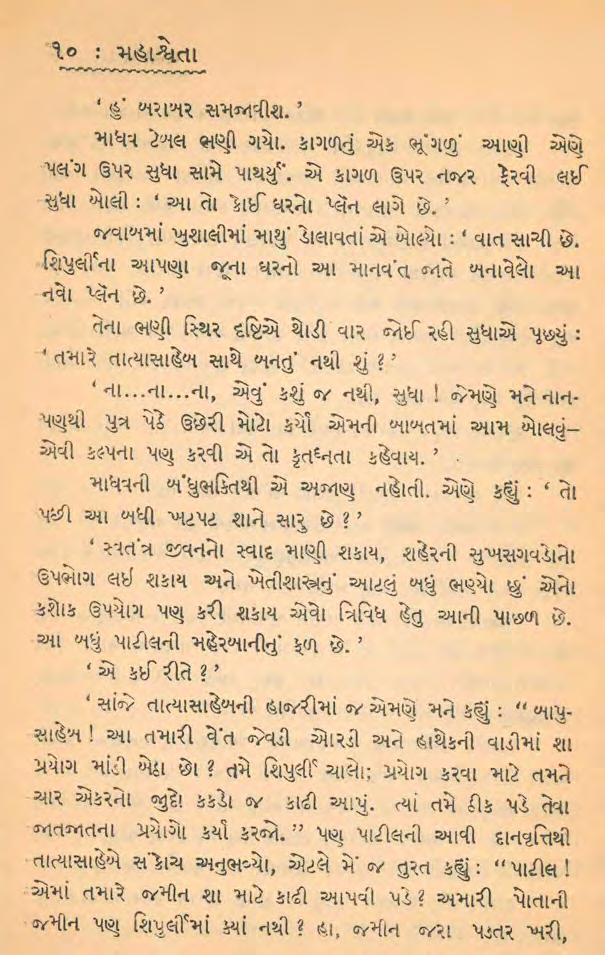 ૧૦ : મહાશ્વેતા
‘ હું બરાબર સમજાવીશ. ’
માધવ ટેબલ ભણી ગયો. કાગળનું એક ભૂંગળું આણી એણે
પલંગ ઉપર સુધા સામે પાથર્યું. એ કાગળ ઉપર નજર ફેરવી લઈ
સુધા બોલી : ‘ આ તો કોઈ ઘરનો પ્લૅન લાગે છે. ’
જવાબમાં ખુશાલીમાં માથું ડોલાવતાં એ બોલ્યો : ‘ વાત સાચી છે.
શિપુર્લીના આપણા જૂના ઘરનો આ માનવંત જાતે બનાવેલો આ
નવો પ્લૅન છે. ’
તેના ભણી સ્થિર દૃષ્ટિએ થોડી વાર જોઈ રહી સુધાએ પૂછયું :
‘ તમારે તાત્યાસાહેબ સાથે બનતું નથી શું ? ’
‘ ના...ના...ના, એવું કશું જ નથી, સુધા ! જેમણે મને નાન-
પણથી પુત્ર પેઠે ઉછેરી મોટો કર્યો એમની બાબતમાં આમ બોલવું–
એવી કલ્પના પણ કરવી એ તો કૃતઘ્નતા કહેવાય. ’
માધવની બંધુભક્તિથી એ અજાણ નહોતી. એણે કહ્યું : ‘ તો
પછી આ બધી ખટપટ શાને સારુ છે ? ’
‘ સ્વતંત્ર જીવનનો સ્વાદ માણી શકાય, શહેરની સુખસગવડોનો
ઉપભોગ લઈ શકાય અને ખેતીશાસ્ત્રનું આટલું બધું ભણ્યો છું એનો
કશોક ઉપયોગ પણ કરી શકાય એવો ત્રિવિધ હેતુ આની પાછળ છે.
આ બધું પાટીલની મહેરબાનીનું ફળ છે. ’
‘ એ કઈ રીતે ? ’
‘ સાંજે તાત્યાસાહેબની હાજરીમાં જ એમણે મને કહ્યું : “ બાપુ-
સાહેબ ! આ તમારી વેંત જેવડી ઓરડી અને હાથેકની વાડીમાં શા
પ્રયોગ માંડી બેઠા છો ? તમે શિપુર્લી ચાલો; પ્રયોગ કરવા માટે તમને
ચાર એકરનો જુદો કકડો જ કાઢી આપું. ત્યાં તમે ઠીક પડે તેવા
જાતજાતના પ્રયોગો કર્યા કરજો. ” પણ પાટીલની આવી દાનવૃત્તિથી
તાત્યાસાહેબે સંકોચ અનુભવ્યો, એટલે મેં જ તુરત કહ્યું : “ પાટીલ !
એમાં તમારે જમીન શા માટે કાઢી આપવી પડે ? અમારી પોતાની
જમીન પણ શિપુર્લીમાં ક્યાં નથી ? હા, જમીન જરા પડતર ખરી,